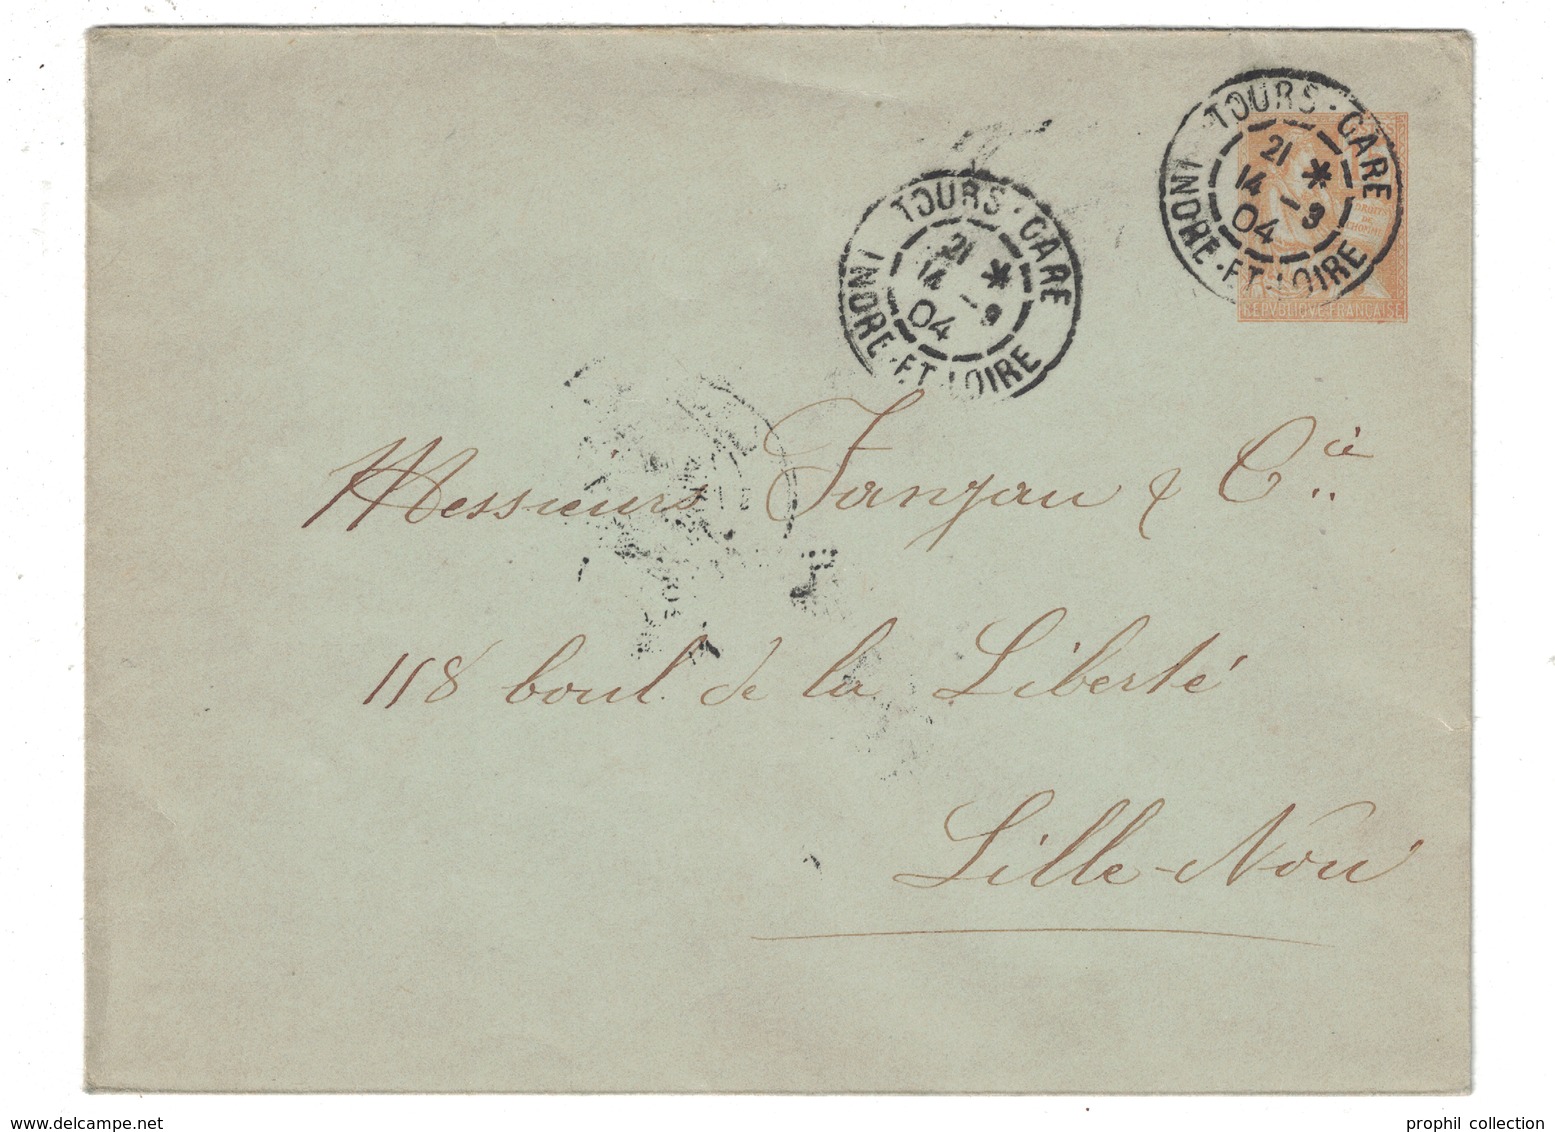 TOURS-GARE
21 *
14 -9
04
INDRE-ET-LOIRE
TOURS-GARE
21 *
14 -9
04
INDRE-ET-LOIRE
DROITS
DE
L'HOMME
REPVBLIQVE·FRANÇAISE
Messieurs Fanyau & Cie
118 boul de la Liberté
Lille-Nord
prophil collection